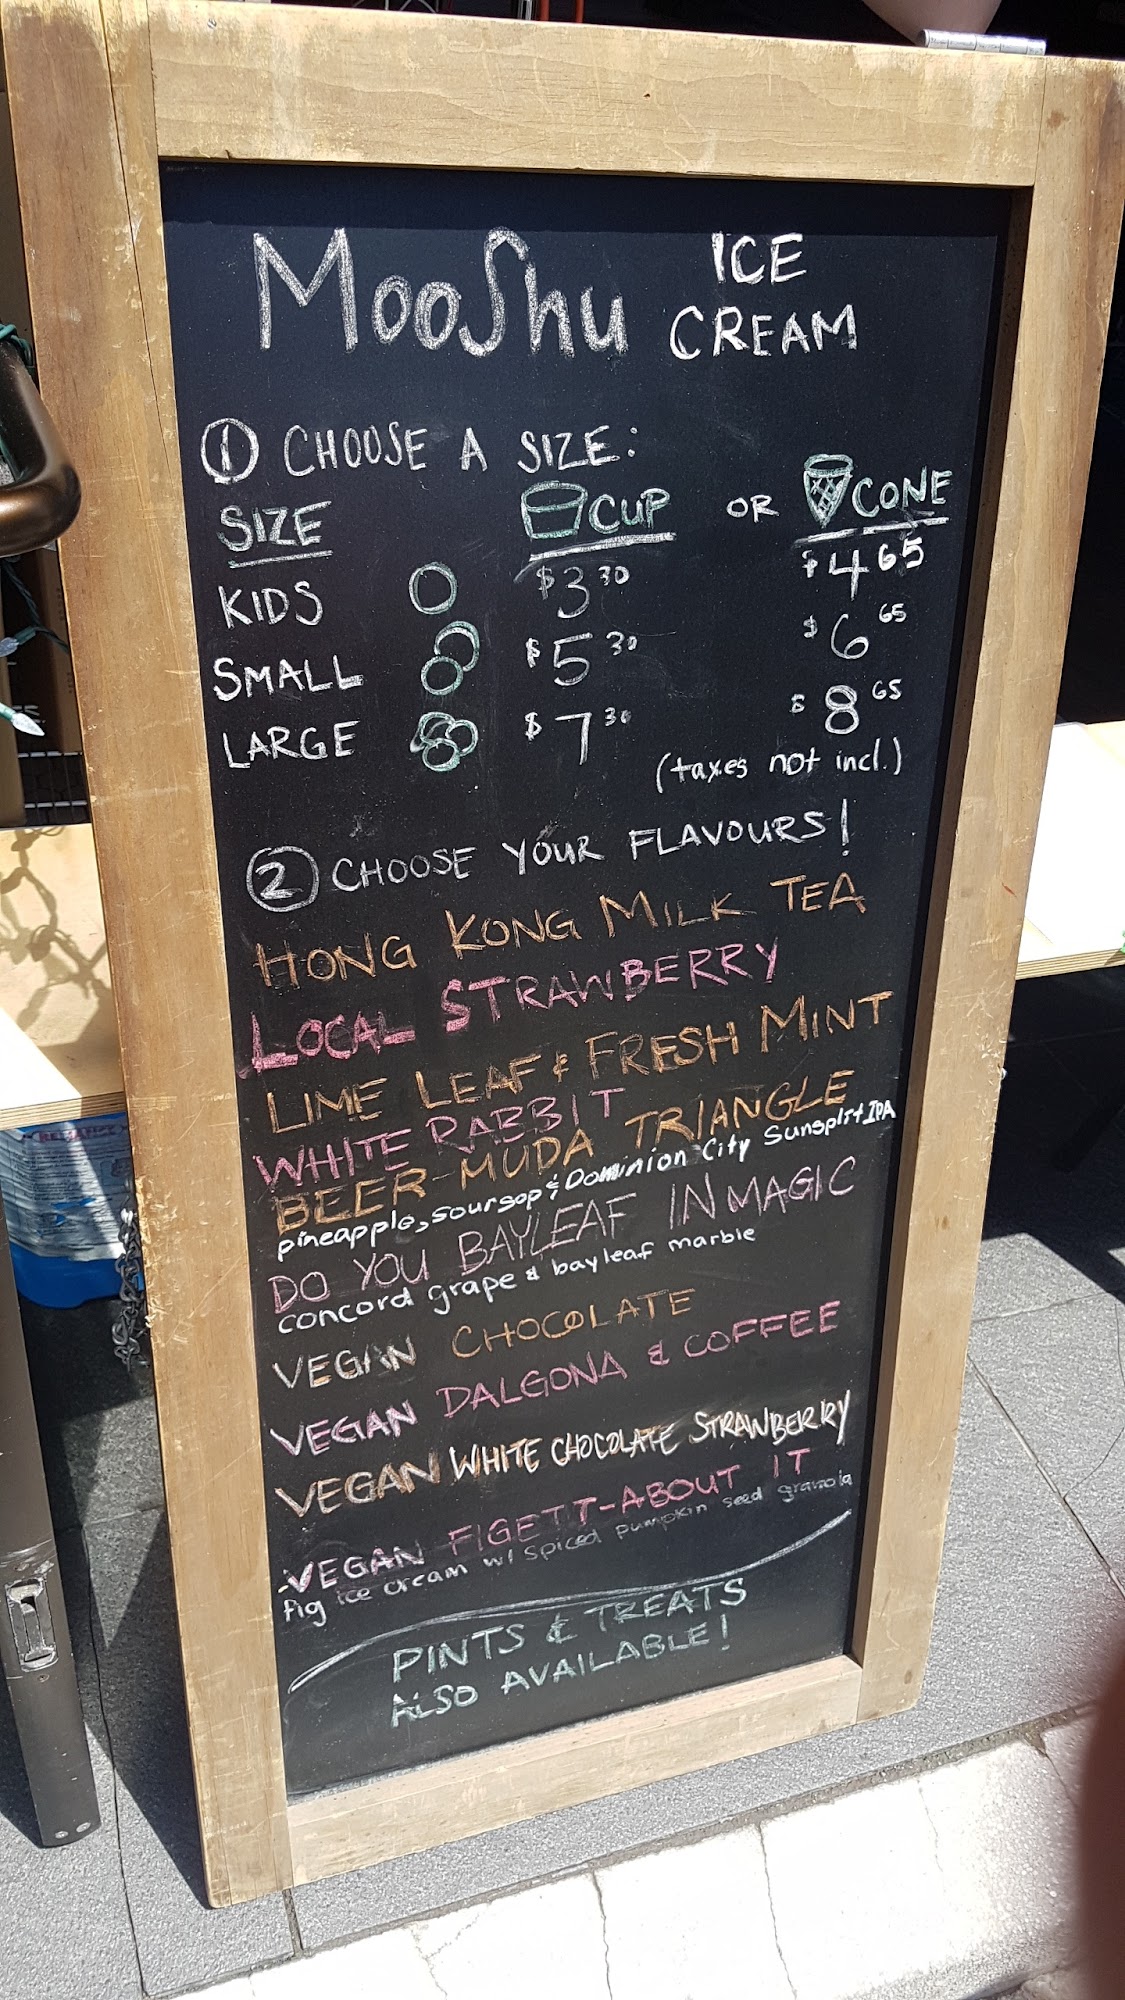 MooShu ICE CREAM
① CHOOSE A SIZE:
SIZE CUP OR CONE
KIDS $3.30 $4.65
SMALL $5.30 $6.65
LARGE $7.30 $8.65
(taxes not incl.)
② CHOOSE YOUR FLAVOURS!
HONG KONG MILK TEA
LOCAL STRAWBERRY
LIME LEAF & FRESH MINT
WHITE RABBIT
BEER-MUDA TRIANGLE
pineapple, soursop & Dominion City Sunsplit IPA
DO YOU BAYLEAF IN MAGIC
concord grape & bayleaf marble
VEGAN CHOCOLATE
VEGAN DALGONA & COFFEE
VEGAN WHITE CHOCOLATE STRAWBERRY
VEGAN FIGETT-ABOUT IT
fig ice cream w/ spiced pumpkin seed granola
PINTS & TREATS
ALSO AVAILABLE!